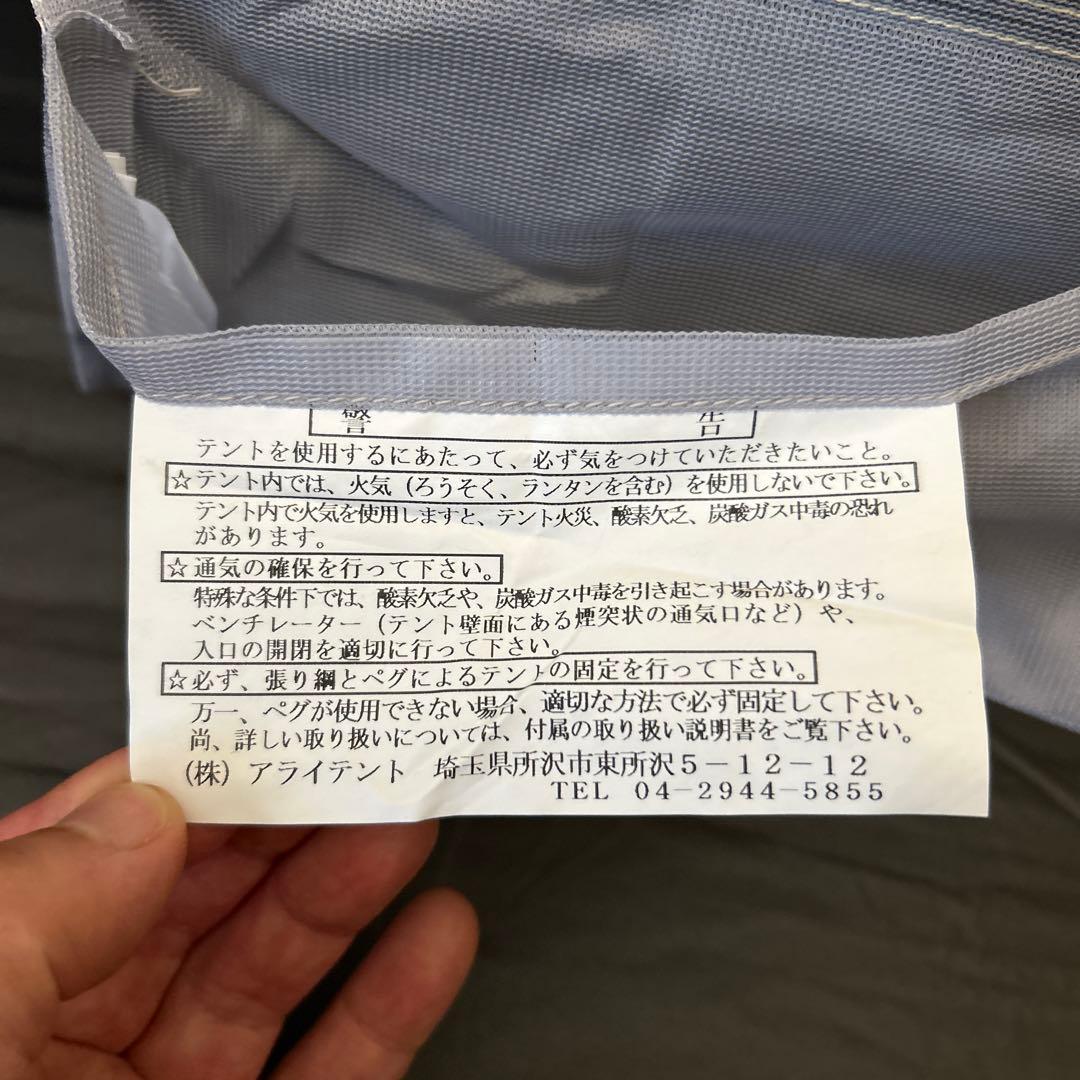 警 告
テントを使用するにあたって、必ず気をつけていただきたいこと。
☆テント内では、火気（ろうそく、ランタンを含む）を使用しないで下さい。
テント内で火気を使用しますと、テント火災、酸素欠乏、炭酸ガス中毒の恐れ
があります。
☆通気の確保を行って下さい。
特殊な条件下では、酸素欠乏や、炭酸ガス中毒を引き起こす場合があります。
ベンチレーター（テント壁面にある煙突状の通気口など）や、
入口の開閉を適切に行って下さい。
☆必ず、張り綱とペグによるテントの固定を行って下さい。
万一、ペグが使用できない場合、適切な方法で必ず固定して下さい。
尚、詳しい取り扱いについては、付属の取り扱い説明書をご覧下さい。
（株）アライテント 埼玉県所沢市東所沢５－１２－１２
TEL 04－2944－5855